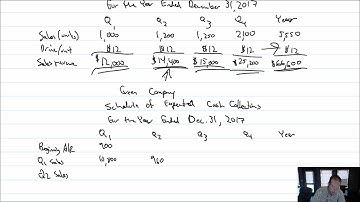 For the Year Ended December 31, 2017
Q1 Q2 Q3 Q4 Year
Sales (units) 1,000 1,200 1,250 2,100 5,550
Price/unit $12 $12 $12 $12 $12
Sales revenue $12,000 $14,400 $15,000 $25,200 $66,600
Green Company
Schedule of Expected Cash Collections
For the Year Ended Dec. 31, 2017
Q1 Q2 Q3 Q4 Year
Beginning A/R 900
Q1 Sales 10,800 960
Q2 Sales